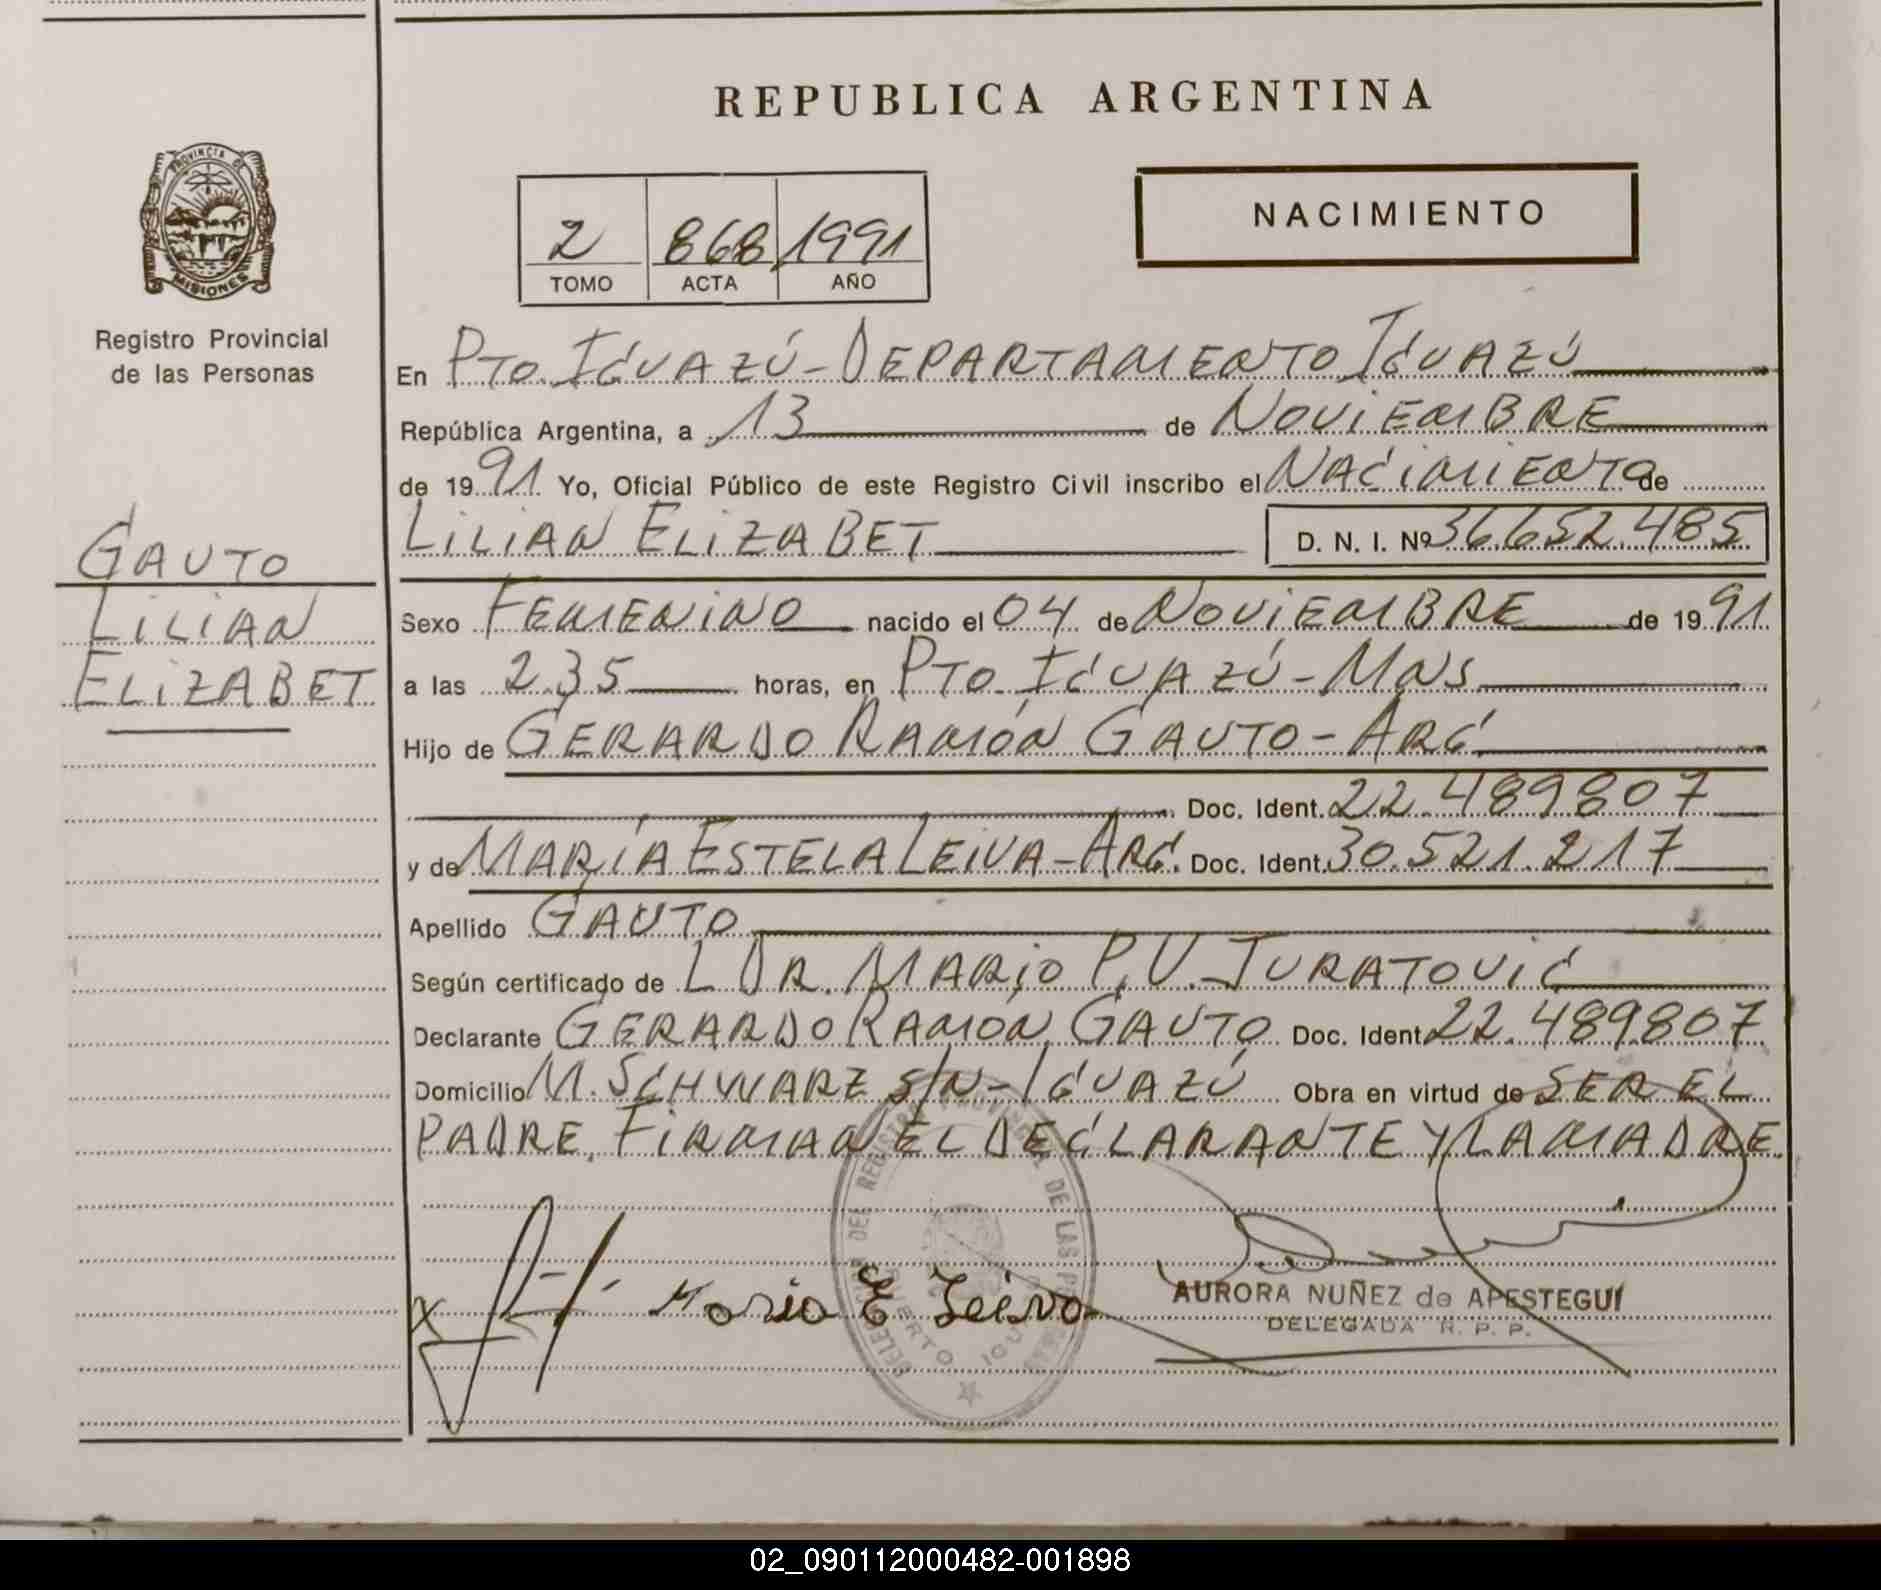 REPUBLICA ARGENTINA
PROVINCIA DE
MISIONES
Registro Provincial
de las Personas
2 868 1991
TOMO ACTA AÑO
NACIMIENTO
En PTO. IGUAZÚ - DEPARTAMENTO IGUAZÚ
República Argentina, a 13 de NOVIEMBRE
de 1991 Yo, Oficial Público de este Registro Civil inscribo el NACIMIENTO de
LILIAN ELIZABET D. N. I. Nº 36.652.485
GAUTO
LILIAN
ELIZABET
Sexo FEMENINO nacido el 04 de NOVIEMBRE de 1991
a las 2.35 horas, en PTO. IGUAZÚ - MNS
Hijo de GERARDO RAMÓN GAUTO - ARG
Doc. Ident. 22.489.807
y de MARÍA ESTELA LEIVA - ARG. Doc. Ident. 30.521.217
Apellido GAUTO
Según certificado de L DR. MARIO P. V. JURATOVIC
Declarante GERARDO RAMON GAUTO Doc. Ident. 22.489.807
Domicilio M. SCHWARZ S/N - IGUAZÚ Obra en virtud de SER EL
PADRE. FIRMAN EL DECLARANTE Y LA MADRE.
Maria E Leiva
AURORA NUÑEZ de APESTEGUI
DELEGADA R. P. P.
02_090112000482-001898